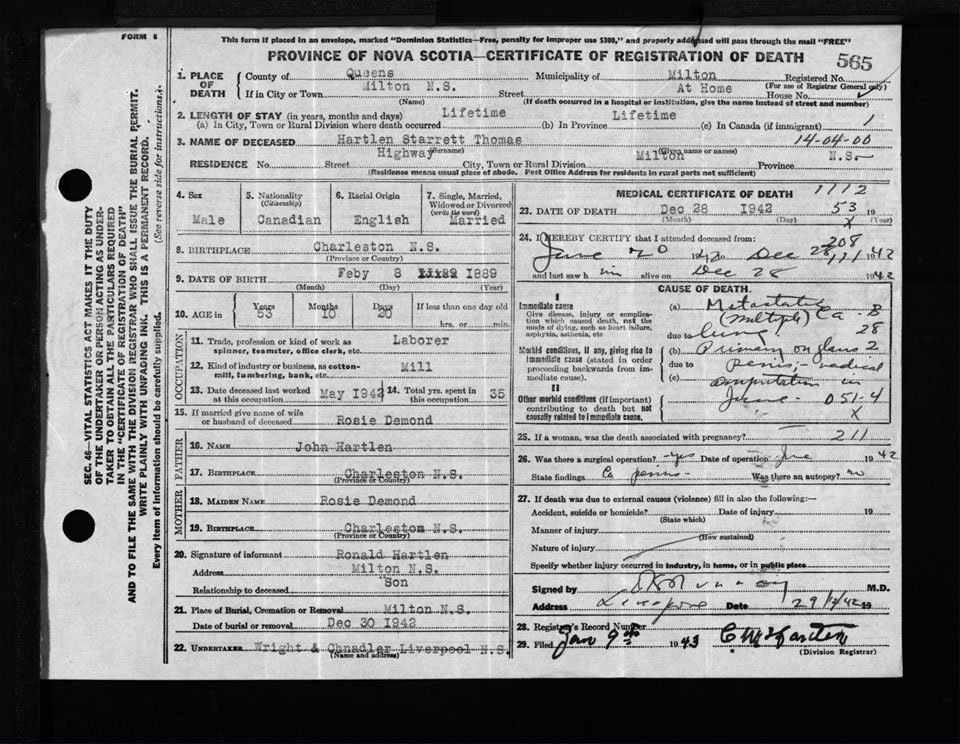 FORM 6
This form if placed in an envelope, marked "Dominion Statistics—Free, penalty for improper use $300," and properly addressed will pass through the mail "FREE"
PROVINCE OF NOVA SCOTIA—CERTIFICATE OF REGISTRATION OF DEATH
565
SEC. 46—VITAL STATISTICS ACT MAKES IT THE DUTY
OF THE UNDERTAKER OR PERSON ACTING AS UNDER-
TAKER TO OBTAIN ALL THE PARTICULARS REQUIRED
IN THE "CERTIFICATE OF REGISTRATION OF DEATH"
AND TO FILE THE SAME WITH THE DIVISION REGISTRAR WHO SHALL ISSUE THE BURIAL PERMIT.
WRITE PLAINLY WITH UNFADING INK. THIS IS A PERMANENT RECORD.
Every item of Information should be carefully supplied. (See reverse side for instructions.)
1. PLACE OF DEATH
County of Queens Municipality of Milton Registered No.
(For use of Registrar General only)
If in City or Town Milton N.S. Street At Home House No.
(Name) (If death occurred in a hospital or institution, give the name instead of street and number)
2. LENGTH OF STAY (in years, months and days)
(a) In City, Town or Rural Division where death occurred Lifetime (b) In Province Lifetime (c) In Canada (if immigrant) 1
3. NAME OF DECEASED Hartlen Starrett Thomas 14-04-00
(Surname) (Given name or names)
RESIDENCE No. Highway Street City, Town or Rural Division Milton Province N.S.
(Residence means usual place of abode. Post Office Address for residents in rural parts not sufficient)
4. Sex
Male
5. Nationality
(Citizenship)
Canadian
6. Racial Origin
English
7. Single, Married,
Widowed or Divorced
(write the word)
Married
8. BIRTHPLACE Charleston N.S.
(Province or Country)
9. DATE OF BIRTH Feby 8 1889
(Month) (Day) (Year)
10. AGE in Years 53 Months 10 Days 20 If less than one day old
hrs. or min.
OCCUPATION
11. Trade, profession or kind of work as
spinner, teamster, office clerk, etc. Laborer
12. Kind of industry or business, as cotton-
mill, lumbering, bank, etc. Mill
13. Date deceased last worked
at this occupation May 1942
14. Total yrs. spent in
this occupation 35
15. If married give name of wife
or husband of deceased Rosie Demond
FATHER
16. NAME John Hartlen
17. BIRTHPLACE Charleston N.S.
(Province or Country)
MOTHER
18. MAIDEN NAME Rosie Demond
19. BIRTHPLACE Charleston N.S.
(Province or Country)
20. Signature of informant Ronald Hartlen
Address Milton N.S.
Relationship to deceased Son
21. Place of Burial, Cremation or Removal Milton N.S.
Date of burial or removal Dec 30 1942
22. UNDERTAKER Wright & Chnadler Liverpool N.S.
(Name and address)
MEDICAL CERTIFICATE OF DEATH 1112
23. DATE OF DEATH Dec 28 1942 53 19
(Month) (Day) (Year)
X
24. I HEREBY CERTIFY that I attended deceased from: 208
June 20 1942 Dec 28 171 1942
and last saw him alive on Dec 28 1942
CAUSE OF DEATH
I
Immediate cause
Give disease, injury or complica-
tion which caused death, not the
mode of dying, such as heart failure,
asphyxia, asthenia, etc
Morbid conditions, if any, giving rise to
immediate cause (stated in order
proceeding backwards from im-
mediate cause).
II
Other morbid conditions (if important)
contributing to death but not
causally related to immediate cause.
(a) Metastatic B
(multiple) Ca 28
due to
(b) Primary on glans 2
due to penis, radical
(c) amputation in
June 051-4
X
25. If a woman, was the death associated with pregnancy? 211
26. Was there a surgical operation? yes Date of operation June 1942
State findings Ca penis Was there an autopsy? no
27. If death was due to external causes (violence) fill in also the following:—
Accident, suicide or homicide? Date of injury 19
(State which)
Manner of injury
(How sustained)
Nature of injury
Specify whether injury occurred in industry, in home, or in public place
Signed by M.D.
Address Liverpool Date 29/12/42 19
28. Registrar's Record Number
29. Filed Jan 9th 1943
(Division Registrar)